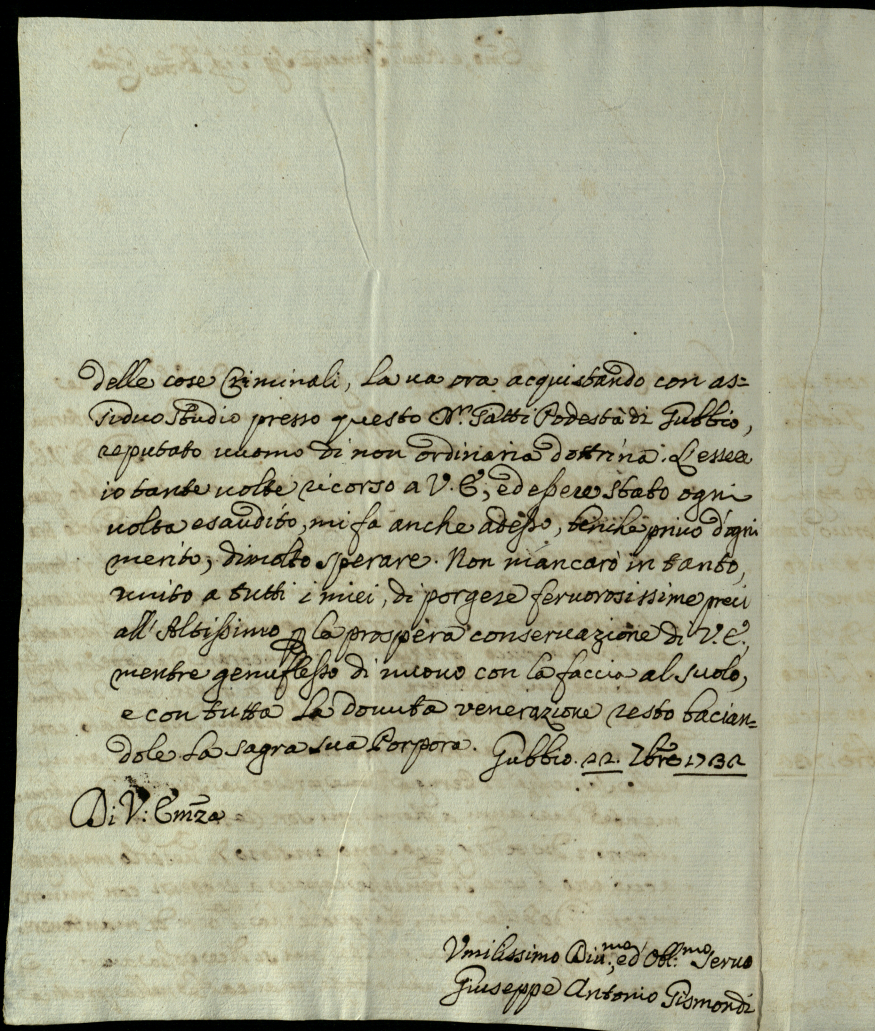 delle cose Criminali, la va ora acquistando con as=
siduo studio presso questo D.r Gatti Podestà di Gubbio,
reputato uuomo di non ordinaria dottrina. L'esser
io tante uolte ricorso a V. E., ed essere stato ogni
uolta esaudito, mi fa anche adesso, benche priuo d'ogni
merito, di molto sperare. Non mancarò in tanto,
unito a tutti i miei, di porgere feruorosissime preci
all'Altissimo p la prospera conseruazione di V. E.,
mentre genuflesso di nuouo con la faccia al suolo,
e con tutta la douuta venerazione resto bacian=
dole la sagra sua Porpora. Gubbio. 22. 7bre 1732
Di V: Emza
Vmilissimo Diu.mo, ed Obl.mo Seruo
Giuseppe Antonio Gismondi